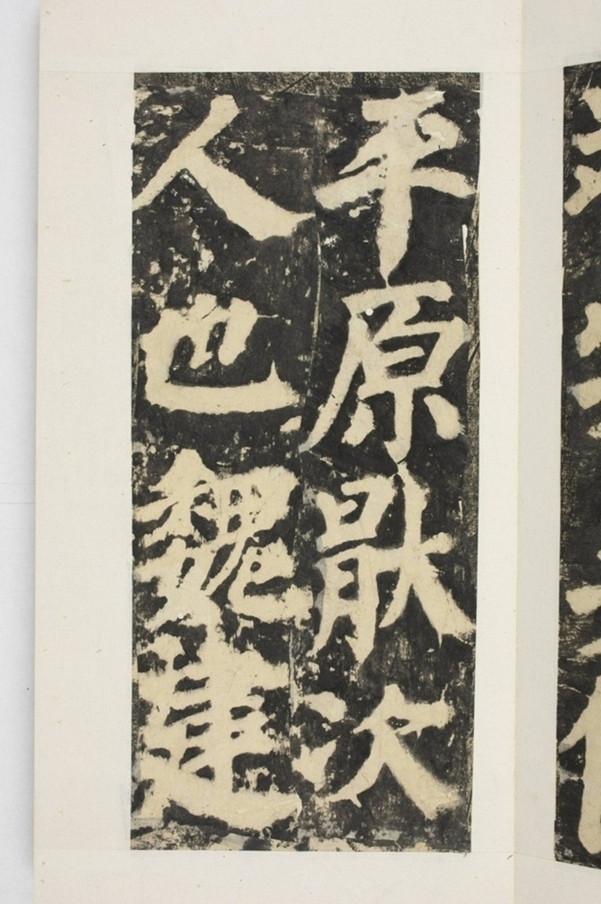 平原猒次
人也魏建